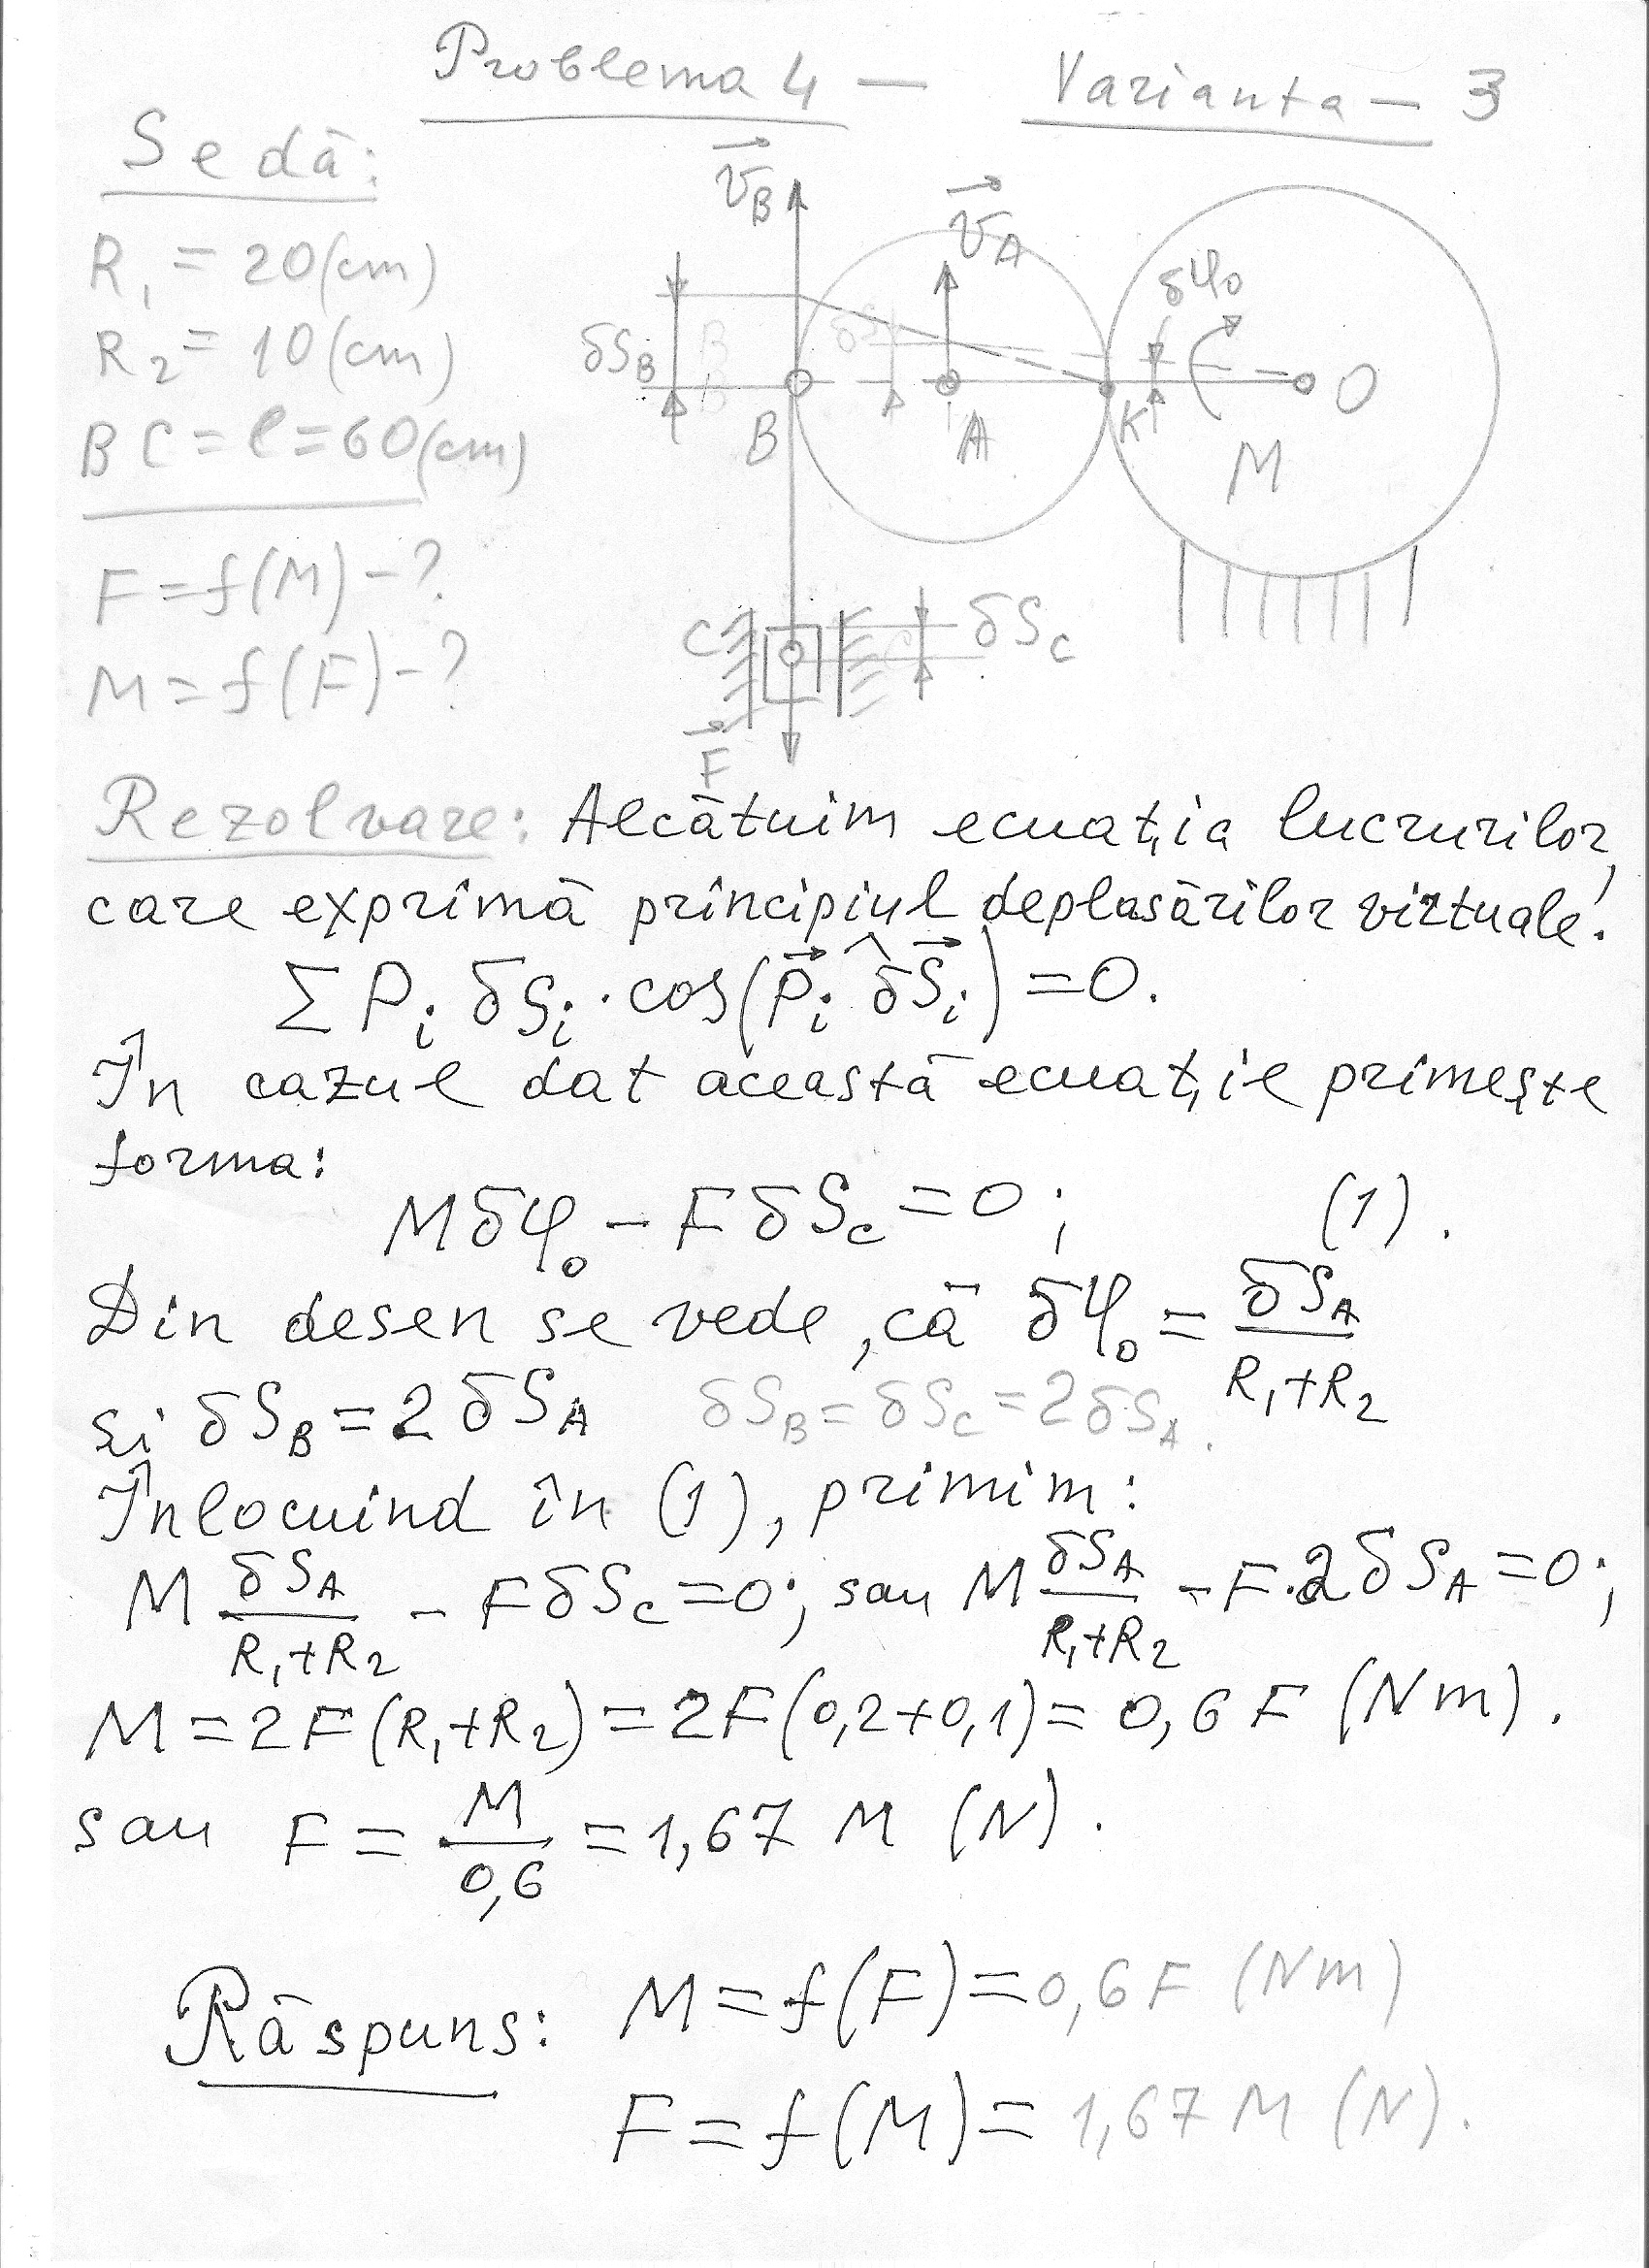 Problema 4 — Varianta – 3
Se dă:
R₁ = 20 (cm)
R₂ = 10 (cm)
BC = l = 60 (cm)
F = f(M) – ?
M = f(F) – ?
v⃗_B
v⃗_A
δφ₀
δS_B
B
A
K
O
M
C
δS_C
F⃗
Rezolvare: Alcătuim ecuația lucrurilor,
care exprimă principiul deplasărilor virtuale:
Σ P_i δS_i · cos(P⃗_i ^ δS⃗_i) = 0.
În cazul dat această ecuație primește
forma:
Mδφ₀ – FδS_c = 0; (1).
Din desen se vede, că δφ₀ = δS_A / (R₁+R₂)
și δS_B = 2 δS_A δS_B = δS_C = 2δS_A.
Înlocuind în (1), primim:
M δS_A / (R₁+R₂) – FδS_C = 0; sau M δS_A / (R₁+R₂) – F·2δS_A = 0;
M = 2F(R₁+R₂) = 2F(0,2+0,1) = 0,6 F (Nm).
sau F = M / 0,6 = 1,67 M (N).
Răspuns: M = f(F) = 0,6 F (Nm)
F = f(M) = 1,67 M (N).